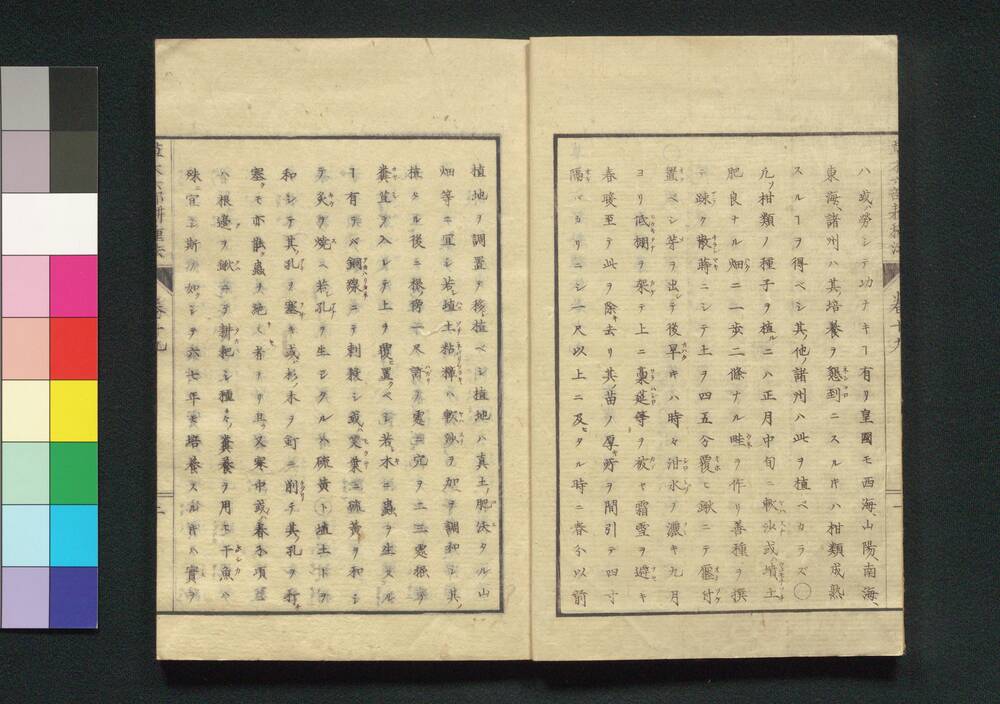 ハ或勞シテ功ナキヿ有リ皇國モ西海、山陽、南海、
東海、諸州ハ其培養ヲ懇到ニスルキハ柑類成熟
スルヿヲ得ベシ其他ノ諸州ハ此ヲ植ベカラズ〇
凡ソ柑類ノ種子ヲ植ルニハ正月中旬ニ軟沙或墳土
肥良ナル畑ニ一歩二條ナル畦ヲ作リ善種ヲ撰
テ疎ク散蒔ニシテ土ヲ四五分覆ヒ鍬ニテ偃付
置ベシ芽ヲ出シテ後旱キハ時々泔水ノ濃キ九月
ヨリ低棚ヲ架テ上ニ藁莚等ヲ被セ霜雪ヲ避キ
春暖至テ此ヲ除キ去リ其苗ノ厚キ所ヲ間引テ四寸
隔バカリニシ一尺以上ニ及タル時ニ春分以前
植地ヲ調置テ移植ベシ植地ハ真土ノ肥沃タル山
畑等ニ宜シ若埴土粘ハ軟沙ヲ加ヲ調和シ其ノ
植タル後ニ根傍一尺ヲ處ニ穴ヲ二三處掘リ
糞ヲ入レテ上ヲ覆置ベシ若木ニ蟲ヲ生スル
ヿ有ラバ銅ニテ刺殺シ或芫葉ニ硫黄ヲ和シ
テ灸リ焼ベ若孔ヲ生シタルハ硫黄ト埴土トヲ
和シテ其孔ヲ塞キ或杉ノ木ヲ釘ニ削テ其孔ヲ
塞クモ亦能蟲ヲ絶ク者ナリ且又寒中或春ノ頃ニ
ハ根邊ヲ鍬ニテ耕耙シ種々ノ糞養ヲ用ヒ干魚ハ
殊ニ宜シ斯ノ如シテ六七年モ培養スルキハ實ヲ